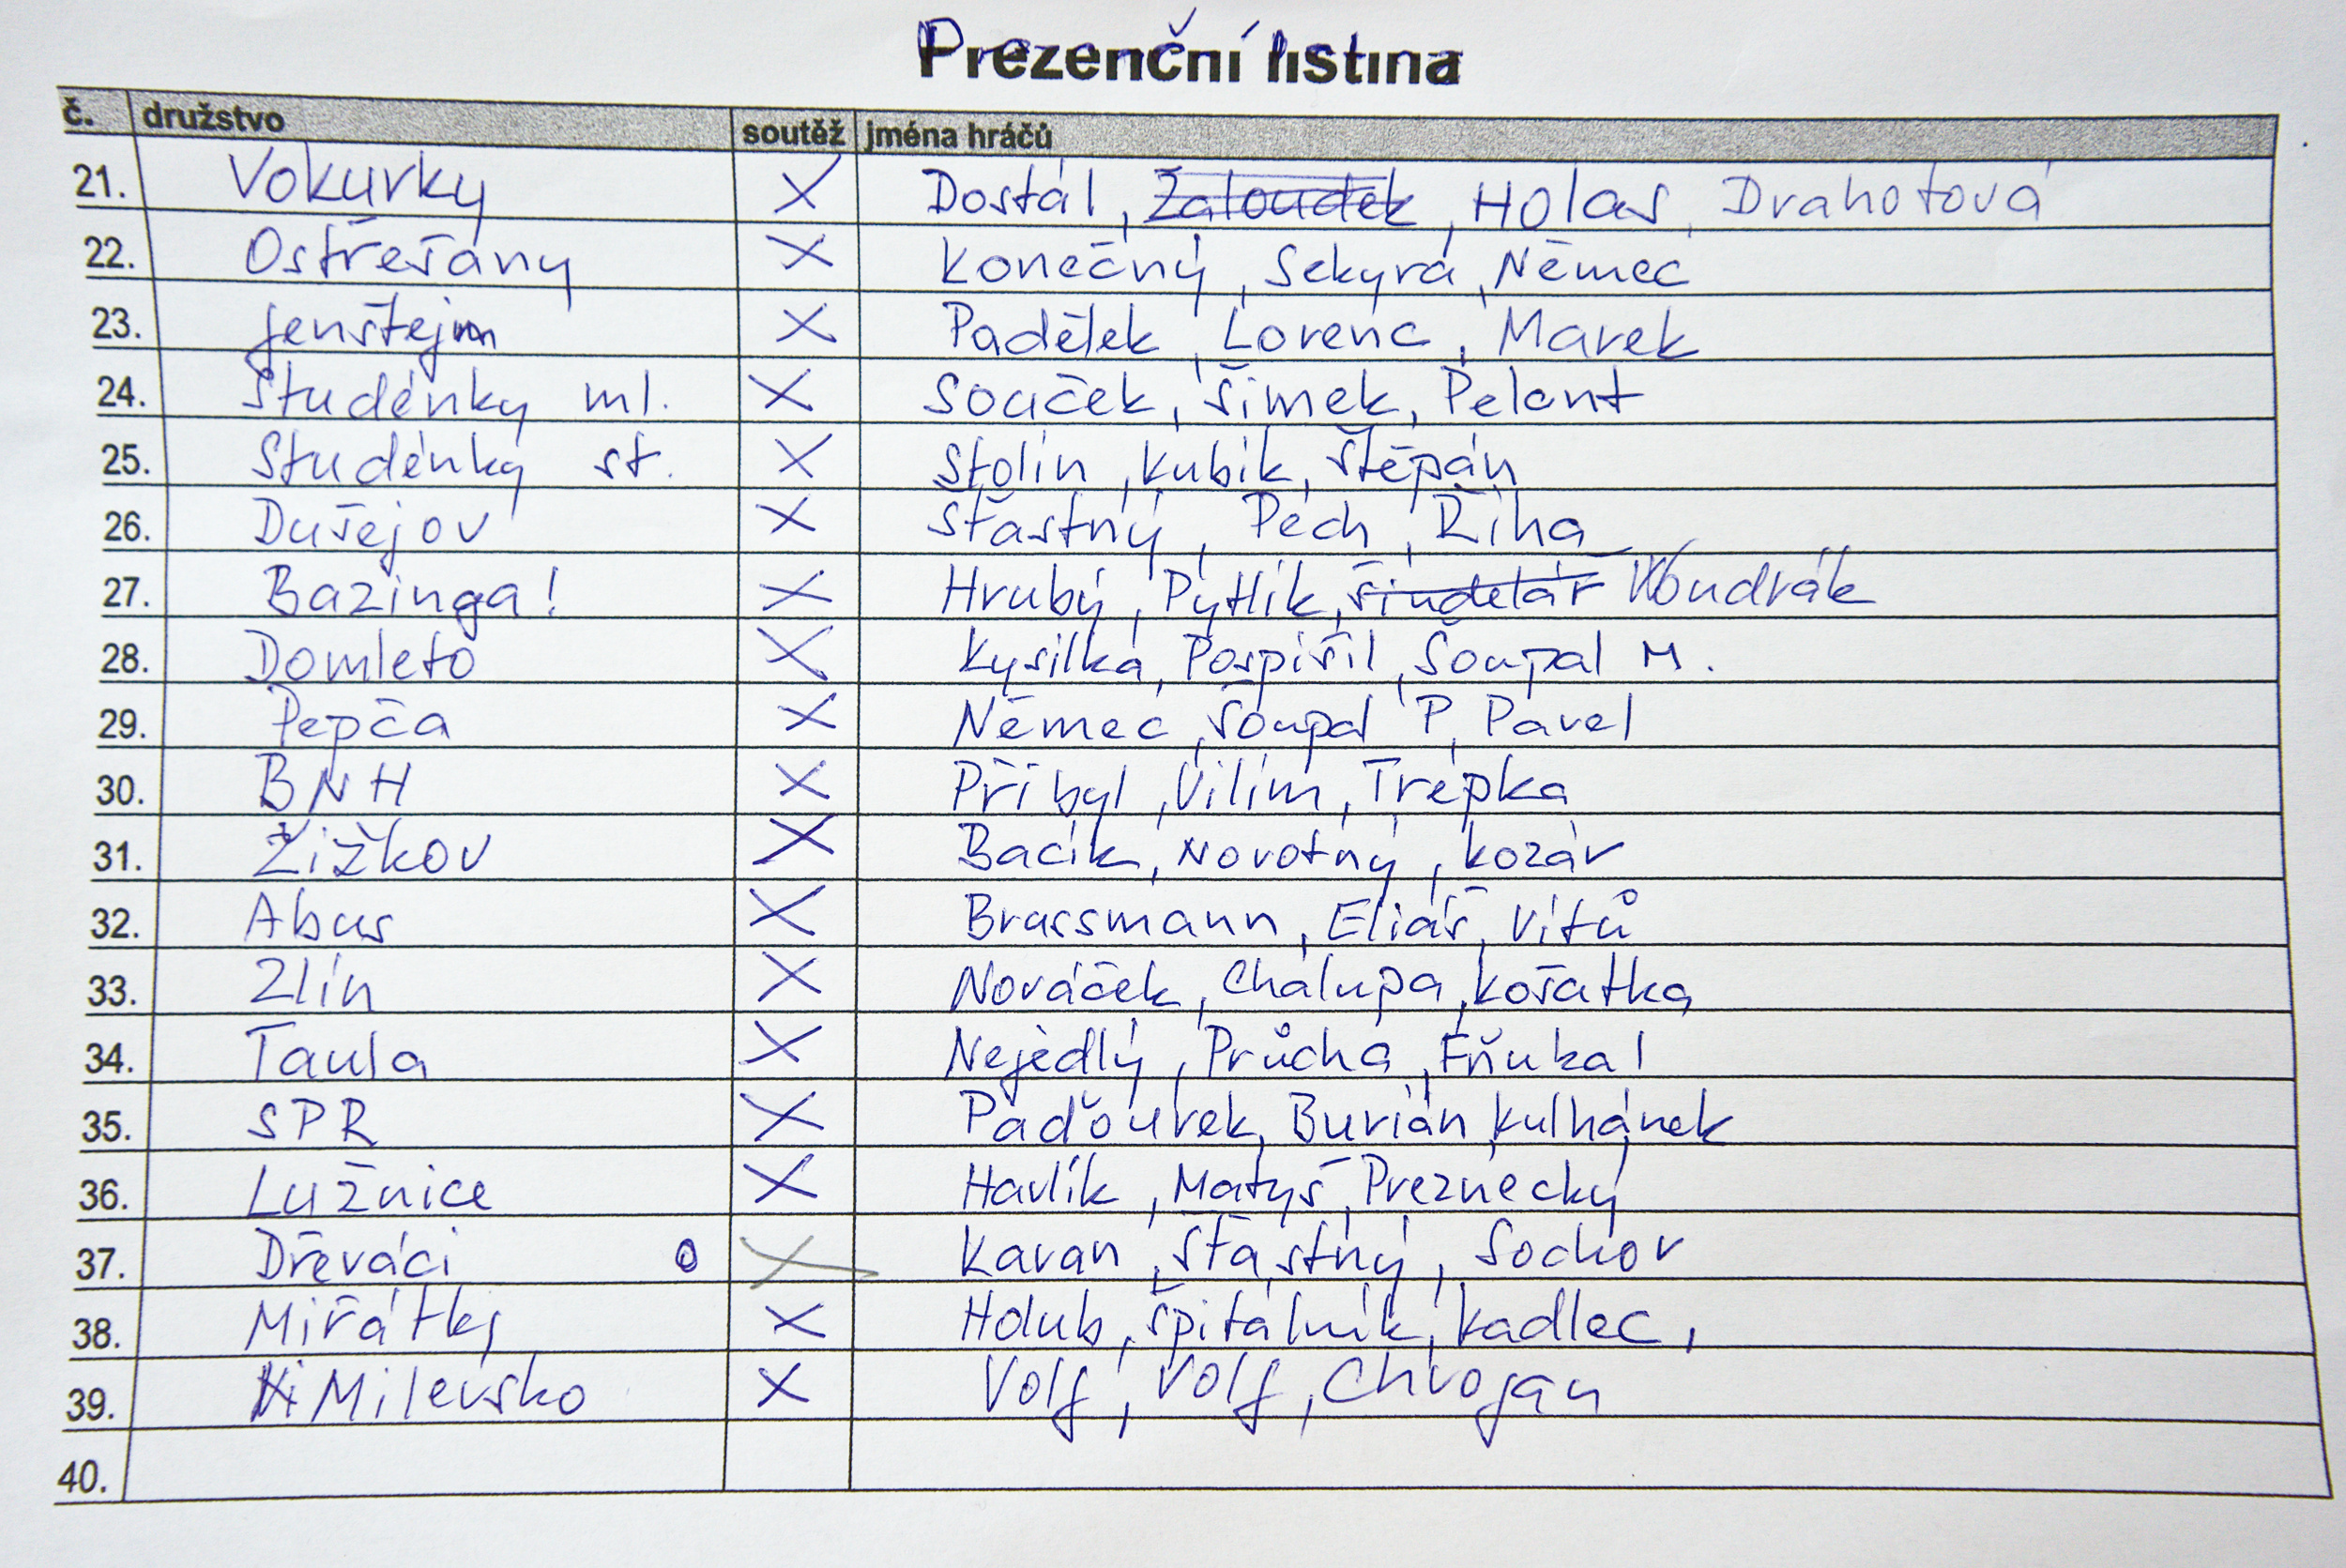 Prezenční listina
č. družstvo soutěž jména hráčů
21. Vokurky X Dostál, Žaloudek, Holas, Drahotová
22. Ostřešany X Konečný, Sekyra, Němec
23. Jenštejn X Padělek, Lorenc, Marek
24. Studénky ml. X Souček, Šimek, Pelant
25. Studénky st. X Stolín, Kubík, Štěpán
26. Dušejov X Šťastný, Pech, Říha
27. Bazinga! X Hrubý, Pytlík, Šindelář Voudrák
28. Domleto X Kysilka, Pospíšil, Šoupal M.
29. Pepča X Němec, Šoupal P, Pavel
30. BNH X Přibyl, Vilím, Trepka
31. Žižkov X Bacík, Novotný, Kozár
32. Abus X Brassmann, Eliáš, Vítů
33. Zlín X Nováček, Chalupa, Košatka
34. Taula X Nejedlý, Průcha, Fňukal
35. SPR X Paďourek, Burian, Kulhánek
36. Lužnice X Havlík, Matyš, Preznecký
37. Dřeváci X Kavan, Šťastný, Sochor
38. Miřátky X Holub, Špitálník, Kadlec,
39. Milevsko X Volf, Volf, Chvojan
40.